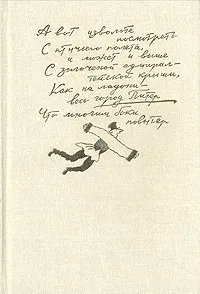 А вот извольте
посмотреть
С птичьего полета,
а может и выше
С золоченой адмирал-
тейской крыши,
Как на ладони –
весь город Питер
Что многим бока
повытер